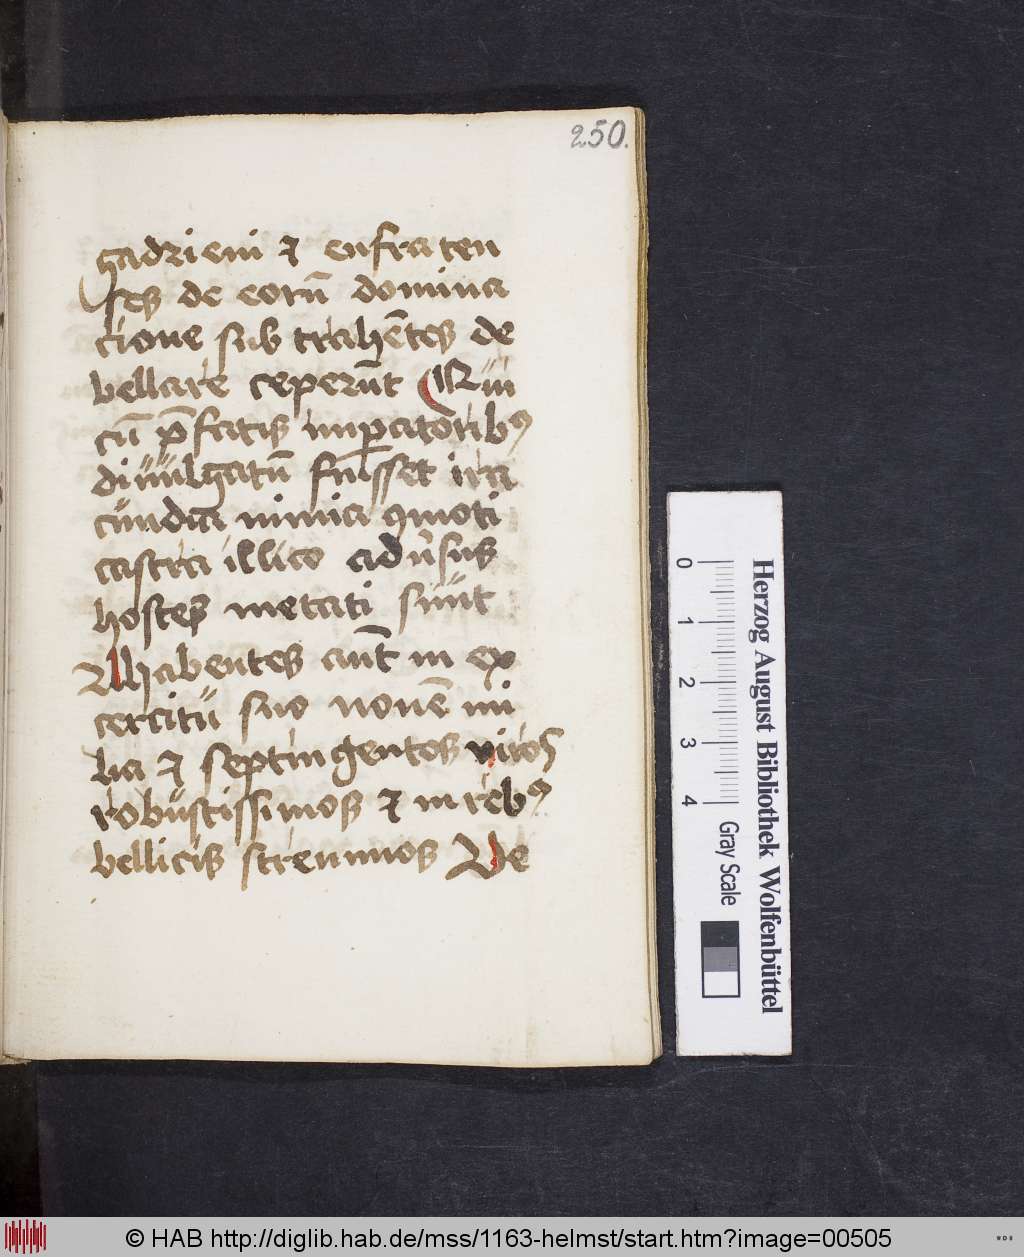 250.
gadrieni ⁊ eufraten
ses de eorū domina
cione sub trahētes de
bellare ceperūt Qui
cū p̄fatis imꝑatoribꝰ
diuulgatū fuisset ira
cundia nimia ꝯmoti
castra illico adūsus
hostes metati sunt
Habentes aūt in ex
cercitu suo nouē mi
lia ⁊ septingentos viroꝝ
robustissimos ⁊ in rebꝰ
bellicis strenuuos Ve
Herzog August Bibliothek Wolfenbüttel
0 1 2 3 4 Gray Scale
© HAB http://diglib.hab.de/mss/1163-helmst/start.htm?image=00505